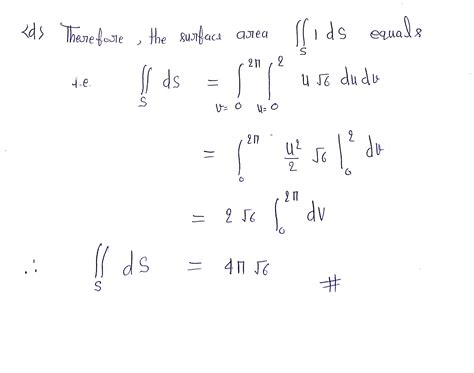 <ds Therefore, the surface area ∬_S 1 dS equals
i.e. ∬_S dS = ∫_{v=0}^{2π} ∫_{u=0}^{2} u √6 du dv
= ∫_0^{2π} u²/2 √6 |_0^2 dv
= 2 √6 ∫_0^{2π} dv
∴ ∬_S dS = 4π √6 #